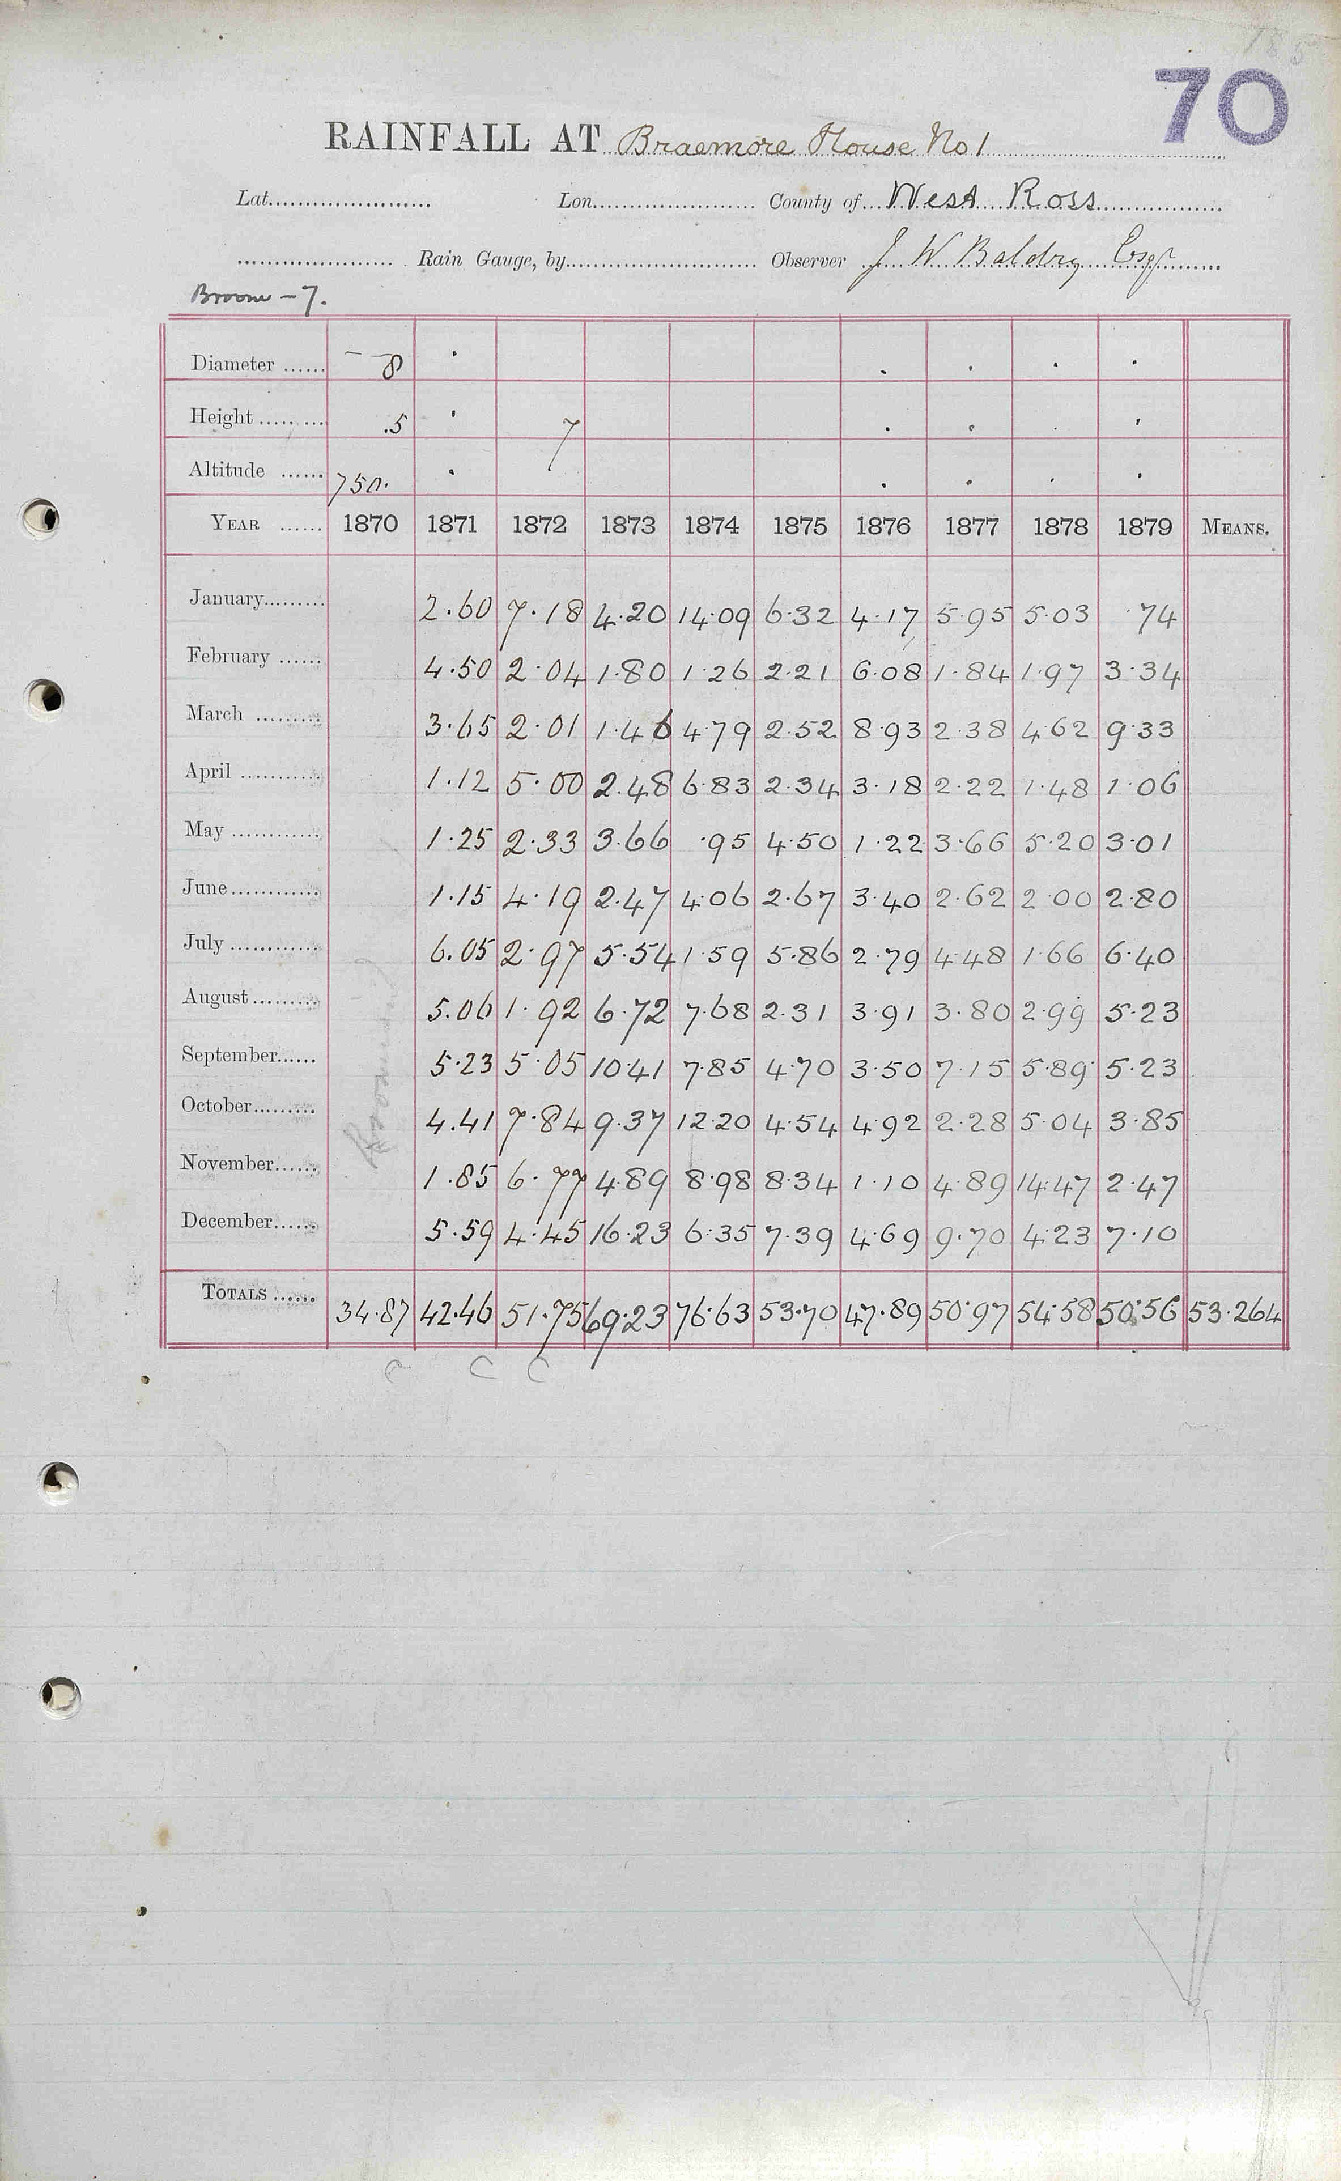 185
70
RAINFALL AT Braemore House No 1
Lat...................... Lon...................... County of West Ross
...................... Rain Gauge, by...................... Observer J W Baldry Esqr
Broom - 7.
Diameter ...... 8
Height ......... .5 7
Altitude ...... 750.
YEAR ...... 1870 1871 1872 1873 1874 1875 1876 1877 1878 1879 MEANS.
January......... 2.60 7.18 4.20 14.09 6.32 4.17 5.95 5.03 .74
February ...... 4.50 2.04 1.80 1.26 2.21 6.08 1.84 1.97 3.34
March ......... 3.65 2.01 1.46 4.79 2.52 8.93 2.38 4.62 9.33
April ............ 1.12 5.00 2.48 6.83 2.34 3.18 2.22 1.48 1.06
May ............ 1.25 2.33 3.66 .95 4.50 1.22 3.66 5.20 3.01
June............ 1.15 4.19 2.47 4.06 2.67 3.40 2.62 2.00 2.80
July ............ 6.05 2.97 5.54 1.59 5.86 2.79 4.48 1.66 6.40
August......... 5.06 1.92 6.72 7.68 2.31 3.91 3.80 2.99 5.23
September...... 5.23 5.05 10.41 7.85 4.70 3.50 7.15 5.89 5.23
October......... 4.41 7.84 9.37 12.20 4.54 4.92 2.28 5.04 3.85
November...... 1.85 6.77 4.89 8.98 8.34 1.10 4.89 14.47 2.47
December...... 5.59 4.45 16.23 6.35 7.39 4.69 9.70 4.23 7.10
TOTALS ...... 34.87 42.46 51.75 69.23 76.63 53.70 47.89 50.97 54.58 50.56 53.264
C C C